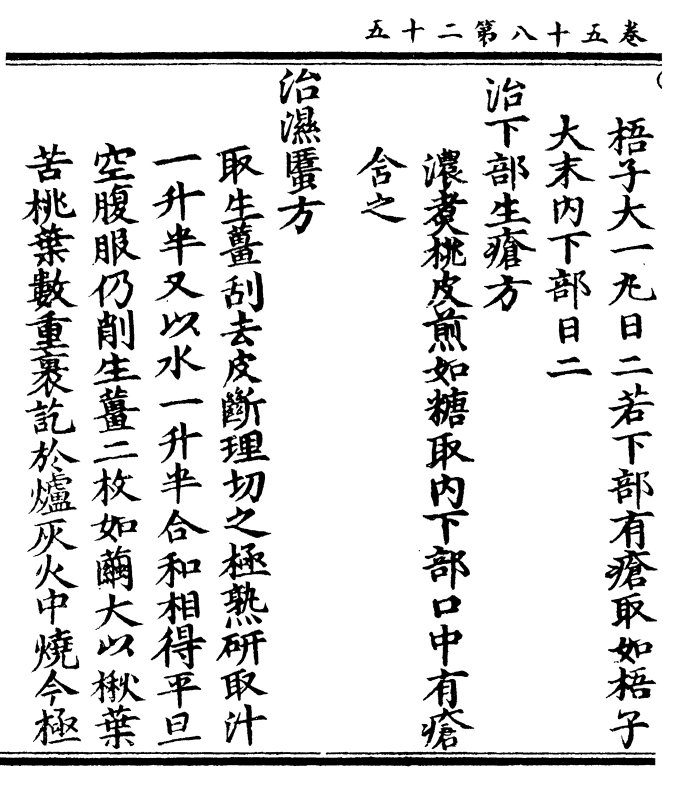 卷五十八第二十五
梧子大一丸日二若下部有瘡取如梧子
大末内下部日二
治下部生瘡方
濃煑桃皮煎如糖取内下部口中有瘡
含之
治濕䘌方
取生薑刮去皮斷理切之極熟研取汁
一升半又以水一升半合和相得平旦
空腹服仍削生薑二枚如繭大以楸葉
苦桃葉數重裹訖於爐灰火中燒令極